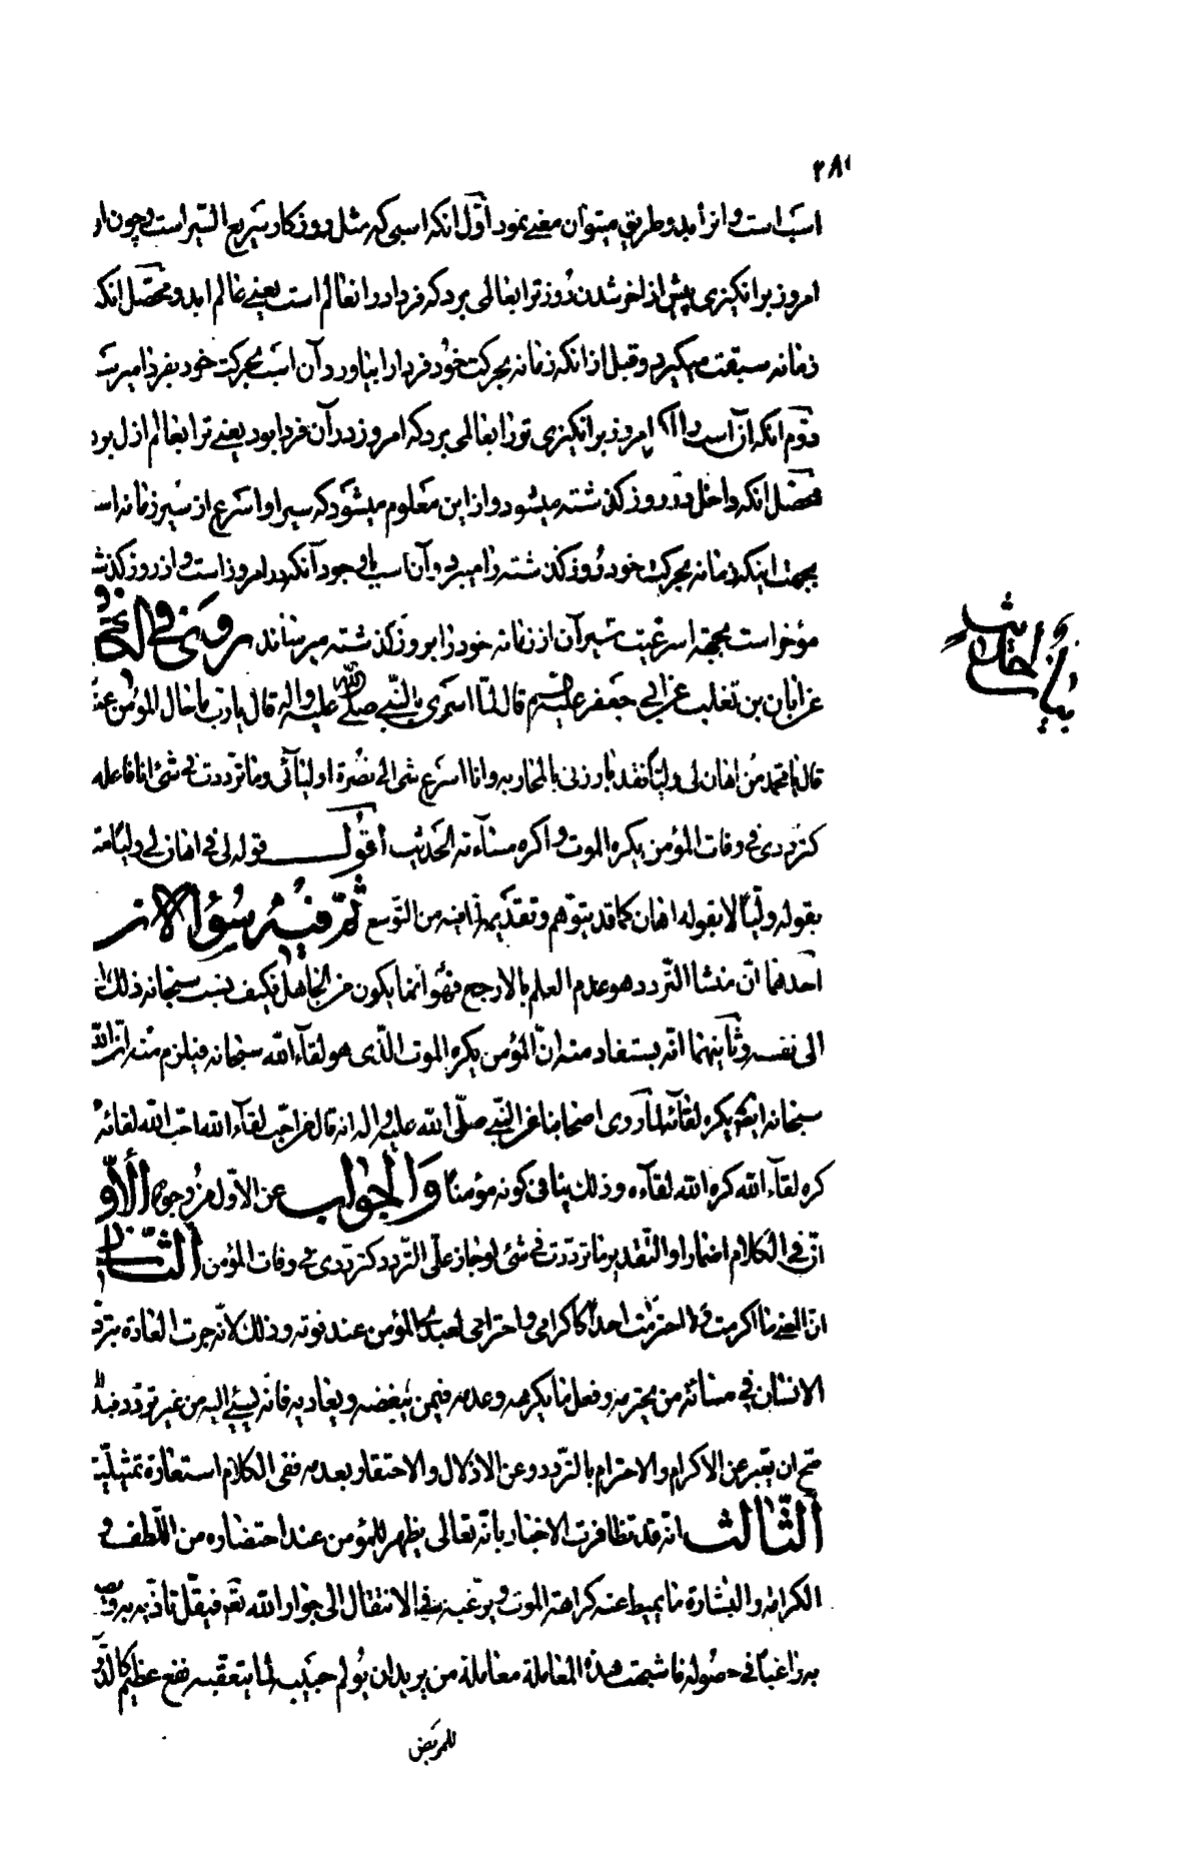 ۲۸۱
اسب است و از آن بدو طریق میتوان معنی نمود اوّل انکه اسبی که مثل روزکار سریع السّیر است و چون او
امروز برانکیزی پیش از اخر شدن روز ترا بعالمی برد که فردا در انعالم است یعنی عالم ابد و محصّل انکه
زمانه سبقت میکیرد و قبل از انکه زمانه بحرکت خود فردا را بیاورد آن اسب بحرکت خود بفردا میرسد
دوّم انکه آن اسب را امروز برانکیزی تو را بعالمی برد که امروز در آن فردا بود یعنی ترا بعالم ازل برد
محصّل انکه داخل در روز کذشته میشود و از این معلوم میشود که سیر او اسرع از سیر زمانه است
بجهت اینکه زمانه بحرکت خود روز کذشته را میبرد و آن اسب با وجود آنکه در امروز است و از روز کذشته
مؤخر است بجهة اسرعیت سیر آن از زمانه خود را بروز کذشته میرساند روی فی الکافی
عن ابان بن تغلب عن ابی جعفر علیه السلام قال لمّا اسری بالنّبی صلی الله علیه و اله قال یا ربّ ما حال المؤمن عندک
قال یا محمد من اهان لی ولیّا فقد بارزنی بالمحاربه و انا اسرع شی الی نصرة اولیائی و ما تردّدت فی شئ انا فاعله
کتردّدی فی وفات المؤمن یکره الموت و اکره مسائته الحدیث اقول قوله لی فی اهان لی ولیّا متعلق
بقوله ولیّا لا بقوله اهان کما قد یتوهم و تقدیمه لما فیه من التّوسع ثم فیه سؤالان
احدهما انّ منشا التّردد هو عدم العلم بالارجح فهو انما یکون من الجاهل فکیف ینسب سبحانه ذلک
الی نفسه و ثانیهما انه یستفاد منه انّ المؤمن یکره الموت الّذی هو لقآء الله سبحانه فیلزم منه انّ الله
سبحانه ایضا یکره لقائه لما روی اصحابنا عن النّبی صلّی الله علیه و اله انه قال من احبّ لقآء الله احبّ الله لقائه
کره لقآء الله کره الله لقآءه و ذلک ینافی کونه مؤمنا و الجواب عن الاوّل من وجوه الاوّل
انّ فی الکلام اضمارا و التّقدیر ما تردّدت فی شئ لو جاز علیّ التّردد کتردّدی فی وفات المؤمن الثّانی
انّ المعنی ما اکرمت و لا احترمت احدا کاکرامی و احترامی لعبدی المؤمن عند فوته و ذلک لانّه جرت العادة بتردّد
الانسان فی مسائة من یحترمه و فعل ما یکرهه و عدمه فیمن یبغضه و یعادیه فانّه یسیئ الیه من غیر تردّد
صحّ ان یعبر عن الاکرام و الاحترام بالتّردد و عن الاذلال و الاحتقار بعدمه ففی الکلام استعارة تمثیلیّة
الثّالث انّه قد تظافرت الاخبار بانّه تعالی یظهر للمؤمن عند احتضاره من اللّطف و
الکرامة و البشارة ما یمیط عنه کراهة الموت و یرغّبه فی الانتقال الی جوار الله تعم فیقلّ تاذّیه به
به راغبا فی حصوله فاشبهت هذه المعاملة معاملة من یرید ان یولم حبیبه لما یتعقبه نفع عظیم
للمریض
بیان احادیث